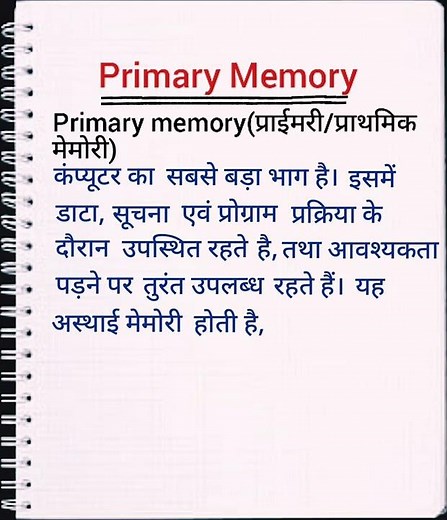 Primary Memory
Primary memory(प्राईमरी/प्राथमिक
मेमोरी)
कंप्यूटर का सबसे बड़ा भाग है। इसमें
डाटा, सूचना एवं प्रोग्राम प्रक्रिया के
दौरान उपस्थित रहते है, तथा आवश्यकता
पड़ने पर तुरंत उपलब्ध रहते हैं। यह
अस्थाई मेमोरी होती है,